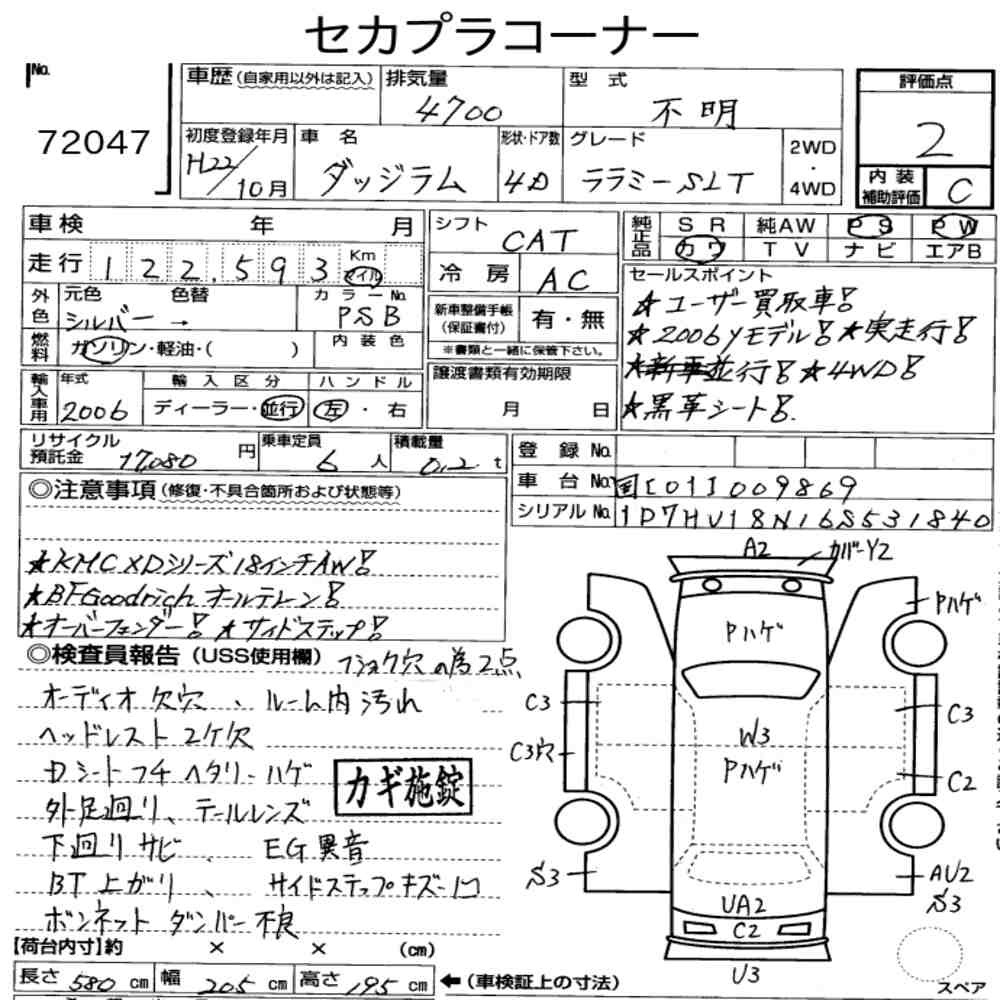 セカプラコーナー
No.
72047
車歴(自家用以外は記入)
排気量
4700
型式
不明
評価点
2
初度登録年月
H22/10月
車名
ダッジラム
形状・ドア数
4D
グレード
ララミーSLT
2WD
・
4WD
内装
補助評価
C
車検 年 月
走行 122,593 Km マイル
シフト
CAT
冷房
AC
純正品
SR 純AW PS PW
カワ TV ナビ エアB
外色
元色 色替
シルバー →
カラーNo.
PSB
新車整備手帳
(保証書付)
有・無
※書類と一緒に保管下さい。
セールスポイント
★ユーザー買取車!
★2006yモデル! ★実走行!
★新車並行! ★4WD!
★黒革シート!.
燃料
ガソリン・軽油・( )
内装色
輸入車用
年式
2006
輸入区分
ディーラー・並行
ハンドル
左・右
譲渡書類有効期限
月 日
リサイクル
預託金
17,080円
乗車定員
6人
積載量
0.2t
登録No.
車台No. 国[01]009869
シリアルNo. 1D7HU18N16S531840
◎注意事項(修復・不具合箇所および状態等)
★KMC XDシリーズ18インチAW!
★BFGoodrich オールテレーン!
★オーバーフェンダー! ★サイドステップ!
◎検査員報告(USS使用欄) フショク穴の為2点
オーディオ欠穴、ルーム内汚れ
ヘッドレスト2ケ欠
Dシートフチヘタリーハゲ
カギ施錠
外足廻り、テールレンズ
下廻りサビ、EG異音
BT上がり、サイドステップキズー凹
ボンネットダンパー不良
【荷台内寸】約 × × (cm)
長さ 580 cm 幅 205 cm 高さ 195 cm
←(車検証上の寸法)
A2
カバーY2
Pハゲ
Pハゲ
C3
C3
W3
Pハゲ
C3穴
C2
S3
AU2
S3
UA2
C2
U3
スペア